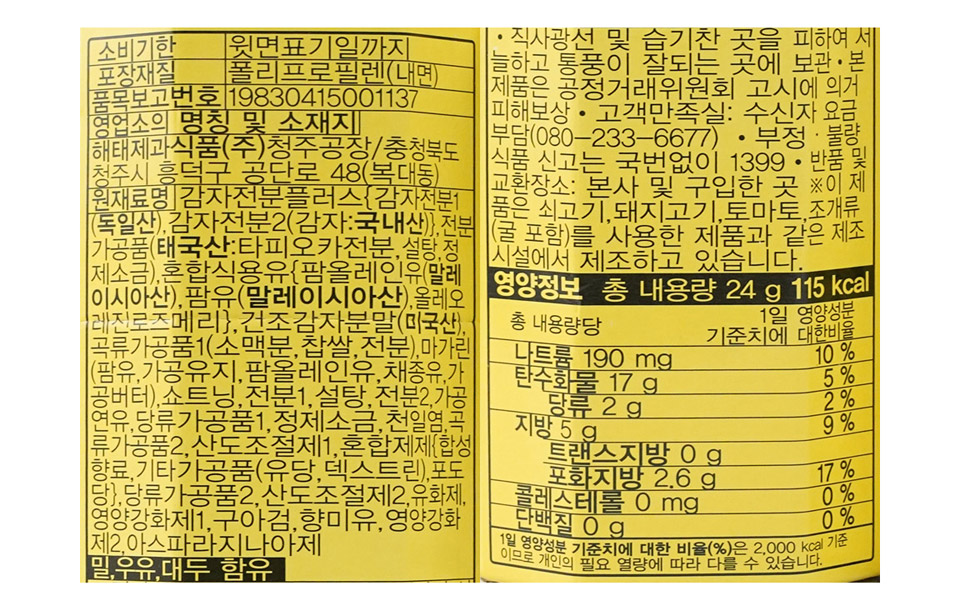 소비기한 윗면표기일까지
포장재질 폴리프로필렌(내면)
품목보고번호 19830415001137
영업소의 명칭 및 소재지
해태제과식품(주)청주공장/충청북도
청주시 흥덕구 공단로 48(복대동)
원재료명 감자전분플러스{감자전분1
(독일산),감자전분2(감자:국내산)},전분
가공품(태국산:타피오카전분,설탕,정
제소금),혼합식용유{팜올레인유(말레
이시아산),팜유(말레이시아산),올레오
레진로즈메리},건조감자분말(미국산),
곡류가공품1(소맥분,찹쌀,전분),마가린
(팜유,가공유지,팜올레인유,채종유,가
공버터),쇼트닝,전분1,설탕,전분2,가공
연유,당류가공품1,정제소금,천일염,곡
류가공품2,산도조절제1,혼합제제{합성
향료,기타가공품(유당,덱스트린),포도
당},당류가공품2,산도조절제2,유화제,
영양강화제1,구아검,향미유,영양강화
제2,아스파라지나아제
밀,우유,대두 함유
• 직사광선 및 습기찬 곳을 피하여 서
늘하고 통풍이 잘되는 곳에 보관 • 본
제품은 공정거래위원회 고시에 의거
피해보상 • 고객만족실: 수신자 요금
부담(080-233-6677) • 부정 · 불량
식품 신고는 국번없이 1399 • 반품 및
교환장소: 본사 및 구입한 곳 ※이 제
품은 쇠고기,돼지고기,토마토,조개류
(굴 포함)를 사용한 제품과 같은 제조
시설에서 제조하고 있습니다.
영양정보 총 내용량 24 g 115 kcal
총 내용량당 1일 영양성분
기준치에 대한비율
나트륨 190 mg 10 %
탄수화물 17 g 5 %
당류 2 g 2 %
지방 5 g 9 %
트랜스지방 0 g
포화지방 2.6 g 17 %
콜레스테롤 0 mg 0 %
단백질 0 g 0 %
1일 영양성분 기준치에 대한 비율(%)은 2,000 kcal 기준
이므로 개인의 필요 열량에 따라 다를 수 있습니다.